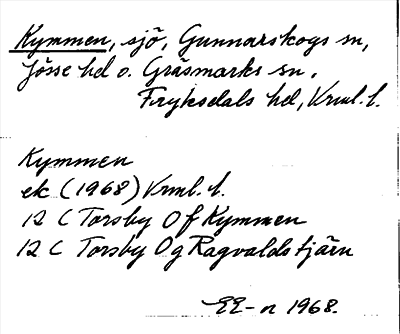 Kymmen, sjö, Gunnarskogs sn,
Jösse hd o. Gräsmarks sn,
Fryksdals hd, Vrml. l.
Kymmen
ek (1968) Vrml. l.
12 C Torsby 0 f Kymmen
12 C Torsby 0 g Ragvaldstjärn
EE-n 1968.